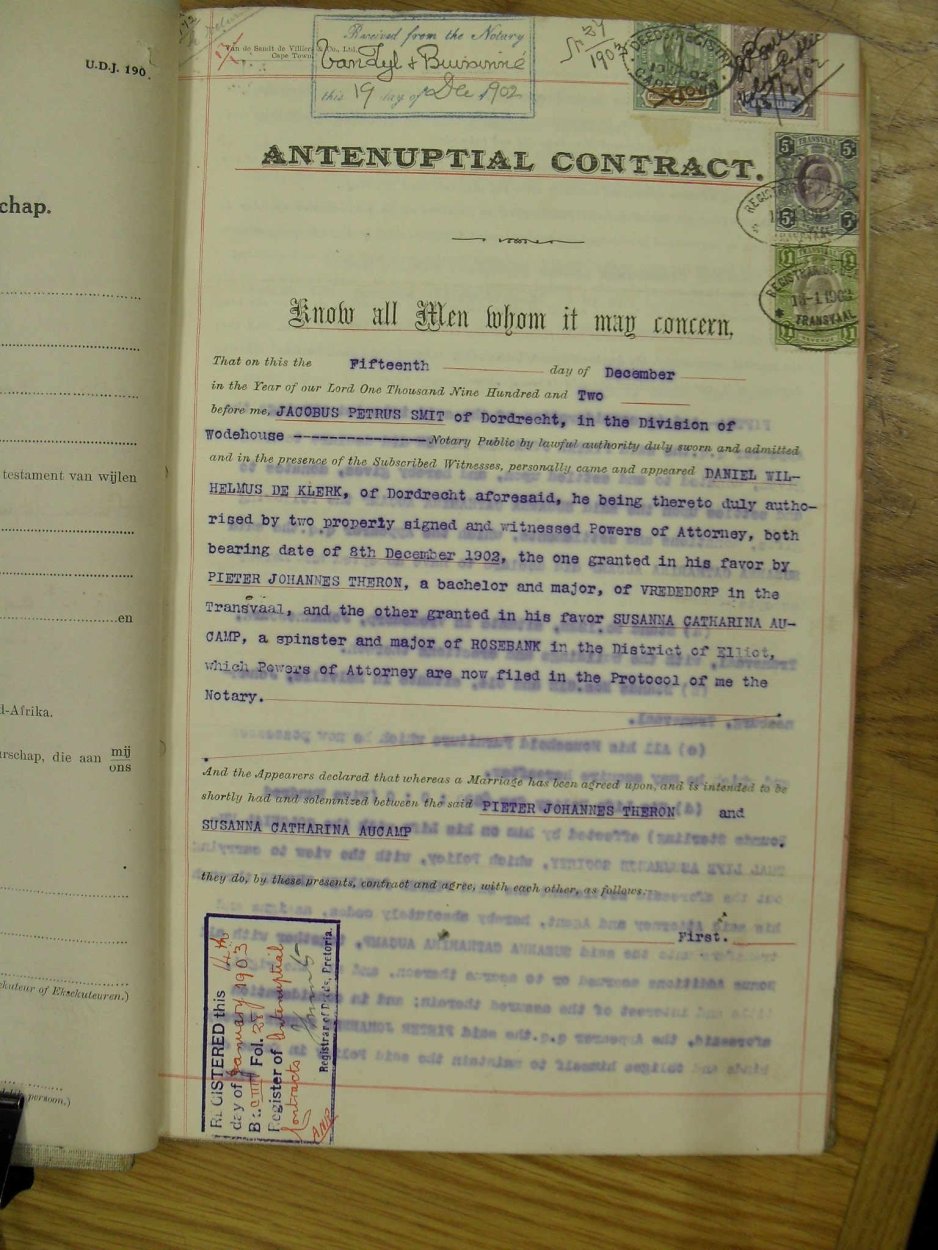 U.D.J. 190
chap.
testament van wijlen
en
d-Afrika.
rschap, die aan mij
ons
kuteur of Eksekuteuren.)
persoon.)
Van de Sandt de Villiers & Co., Ltd.
Cape Town
Received from the Notary
this 19 day of Dec 1902
1903
DEEDS REGISTRY
CAPE TOWN
ANTENUPTIAL CONTRACT.
TRANSVAAL
5/ 5/
5/ 5/
REGISTRAR OF DEEDS
TRANSVAAL
£1 £1
REGISTRAR OF DEEDS
TRANSVAAL
£1 REVENUE £1
Know all Men whom it may concern,
That on this the Fifteenth day of December
in the Year of our Lord One Thousand Nine Hundred and Two
before me, JACOBUS PETRUS SMIT of Dordrecht, in the Division of
Wodehouse ---------------Notary Public by lawful authority duly sworn and admitted
and in the presence of the Subscribed Witnesses, personally came and appeared DANIEL WIL-
HELMUS DE KLERK, of Dordrecht aforesaid, he being thereto duly autho-
rised by two properly signed and witnessed Powers of Attorney, both
bearing date of 8th December 1902, the one granted in his favor by
PIETER JOHANNES THERON, a bachelor and major, of VREDEDORP in the
Transvaal, and the other granted in his favor SUSANNA CATHARINA AU-
CAMP, a spinster and major of ROSEBANK in the District of Elliot,
which Powers of Attorney are now filed in the Protocol of me the
Notary.
And the Appearers declared that whereas a Marriage has been agreed upon, and is intended to be
shortly had and solemnized between the said PIETER JOHANNES THERON and
SUSANNA CATHARINA AUCAMP
they do, by these presents, contract and agree, with each other, as follows:
First.
REGISTERED this 14th
day of January 1903
Fol.
Register of Antenuptial
Contracts
Registrar of Deeds, Pretoria.